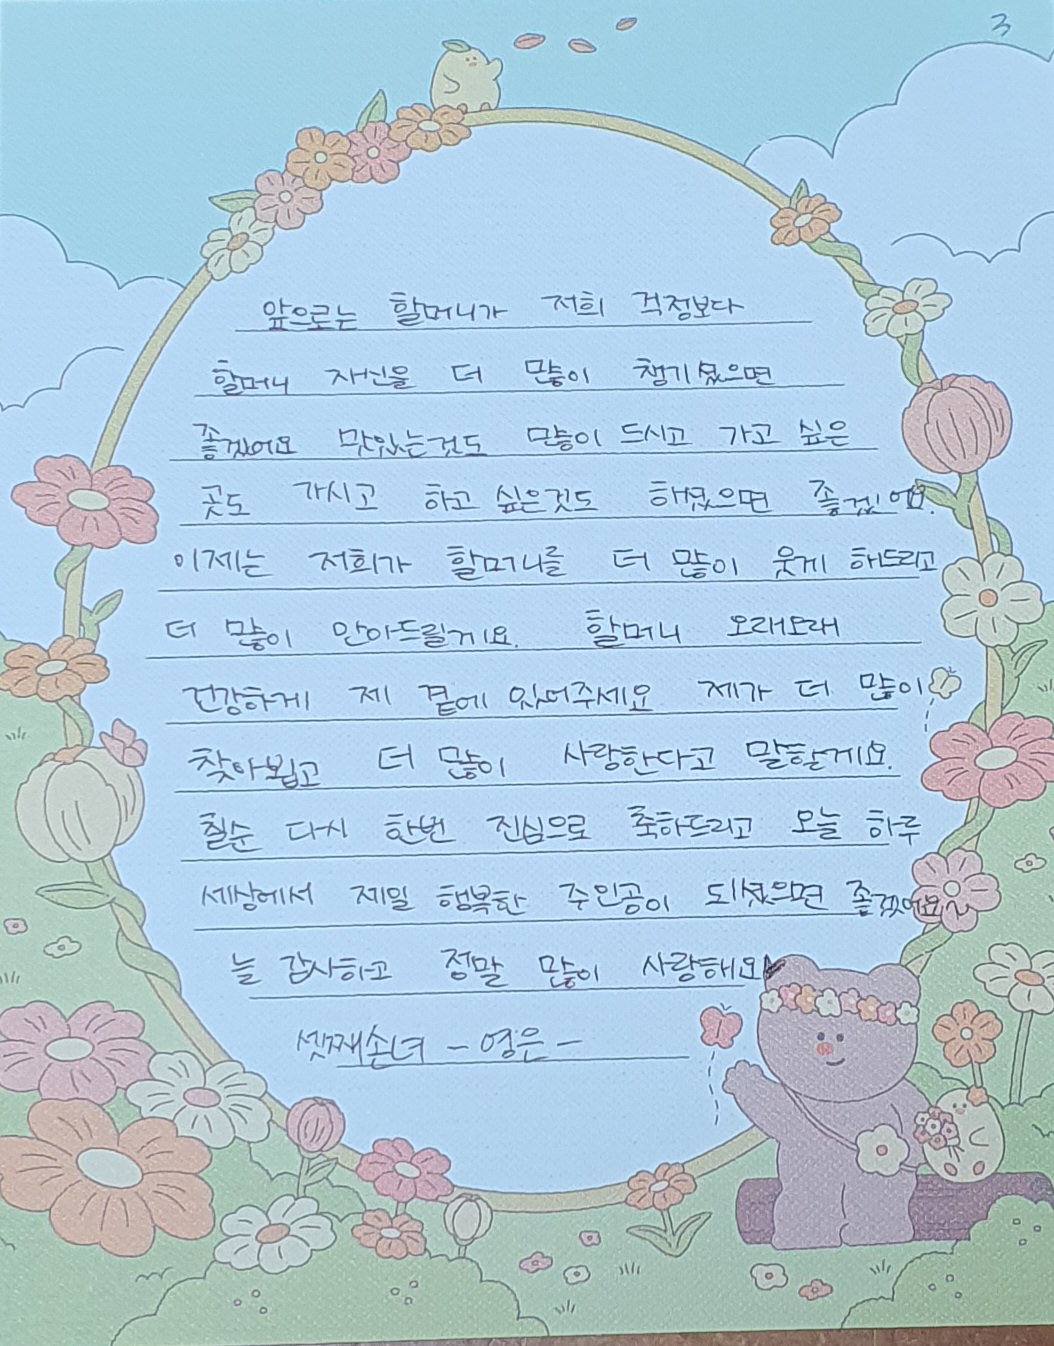 3
앞으로는 할머니가 저희 걱정보다
할머니 자신을 더 많이 챙기셨으면
좋겠어요 맛있는것도 많이 드시고 가고 싶은
곳도 가시고 하고 싶은것도 해셨으면 좋겠어요.
이제는 저희가 할머니를 더 많이 웃게 해드리고
더 많이 안아드릴게요. 할머니 오래오래
건강하게 제 곁에 있어주세요 제가 더 많이
찾아뵙고 더 많이 사랑한다고 말할게요.
칠순 다시 한번 진심으로 축하드리고 오늘 하루
세상에서 제일 행복한 주인공이 되셨으면 좋겠어요~
늘 감사하고 정말 많이 사랑해요
셋째손녀 - 영은 -